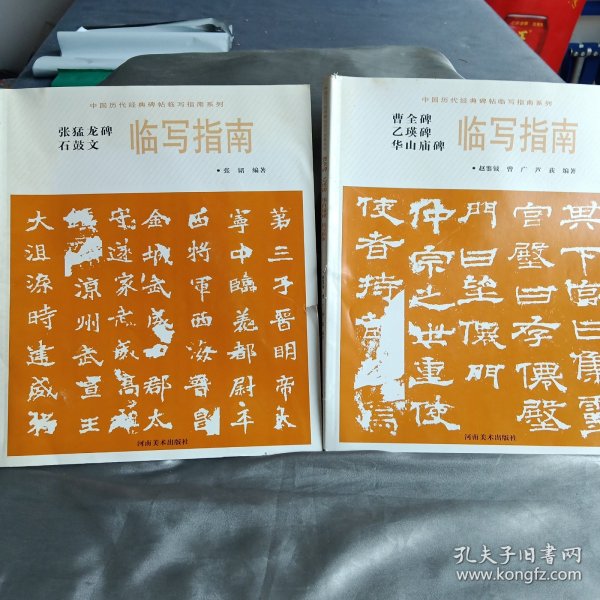 中国历代经典碑帖临写指南系列
张猛龙碑
石鼓文
临写指南
•张 韬 编著
第三子晋明帝大
寧中臨羌都尉平
西將軍西海晋昌
金城武威四郡太
守遂家武威高
源州武宣王
大沮渠時建威
河南美术出版社
中国历代经典碑帖临写指南系列
曹全碑
乙瑛碑
华山庙碑
临写指南
曹广
编著
其下宮曰集靈
宮殿曰存僊殿
門曰望僊門
仲宗之世重使
使者持
河南美术出版社
孔夫子旧书网
www.kongfz.com